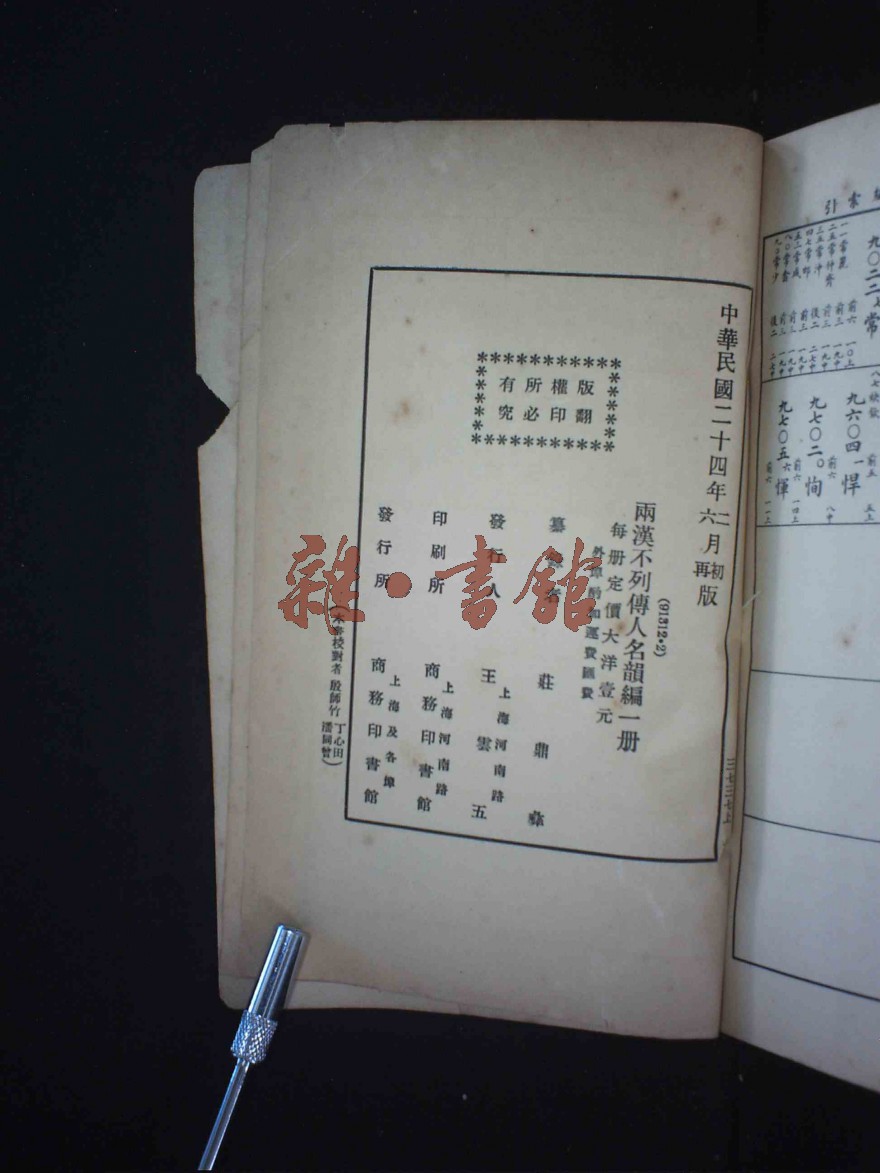 中華民國二十四年二月初版
六月再版
(91312•2)
兩漢不列傳人名韻編一册
每册定價大洋壹元
外埠酌加運費匯費
纂錄者 莊鼎彝
發行人 王雲五
上海河南路
印刷所 商務印書館
上海河南路
發行所 商務印書館
上海及各埠
(本書校對者 殷師竹 丁心田 潘同曾)
版權所有
翻印必究
雜·書館
索引
九〇二二七常
九六〇四一悍
九七〇二〇恂
九七〇五六惲
三七三七上